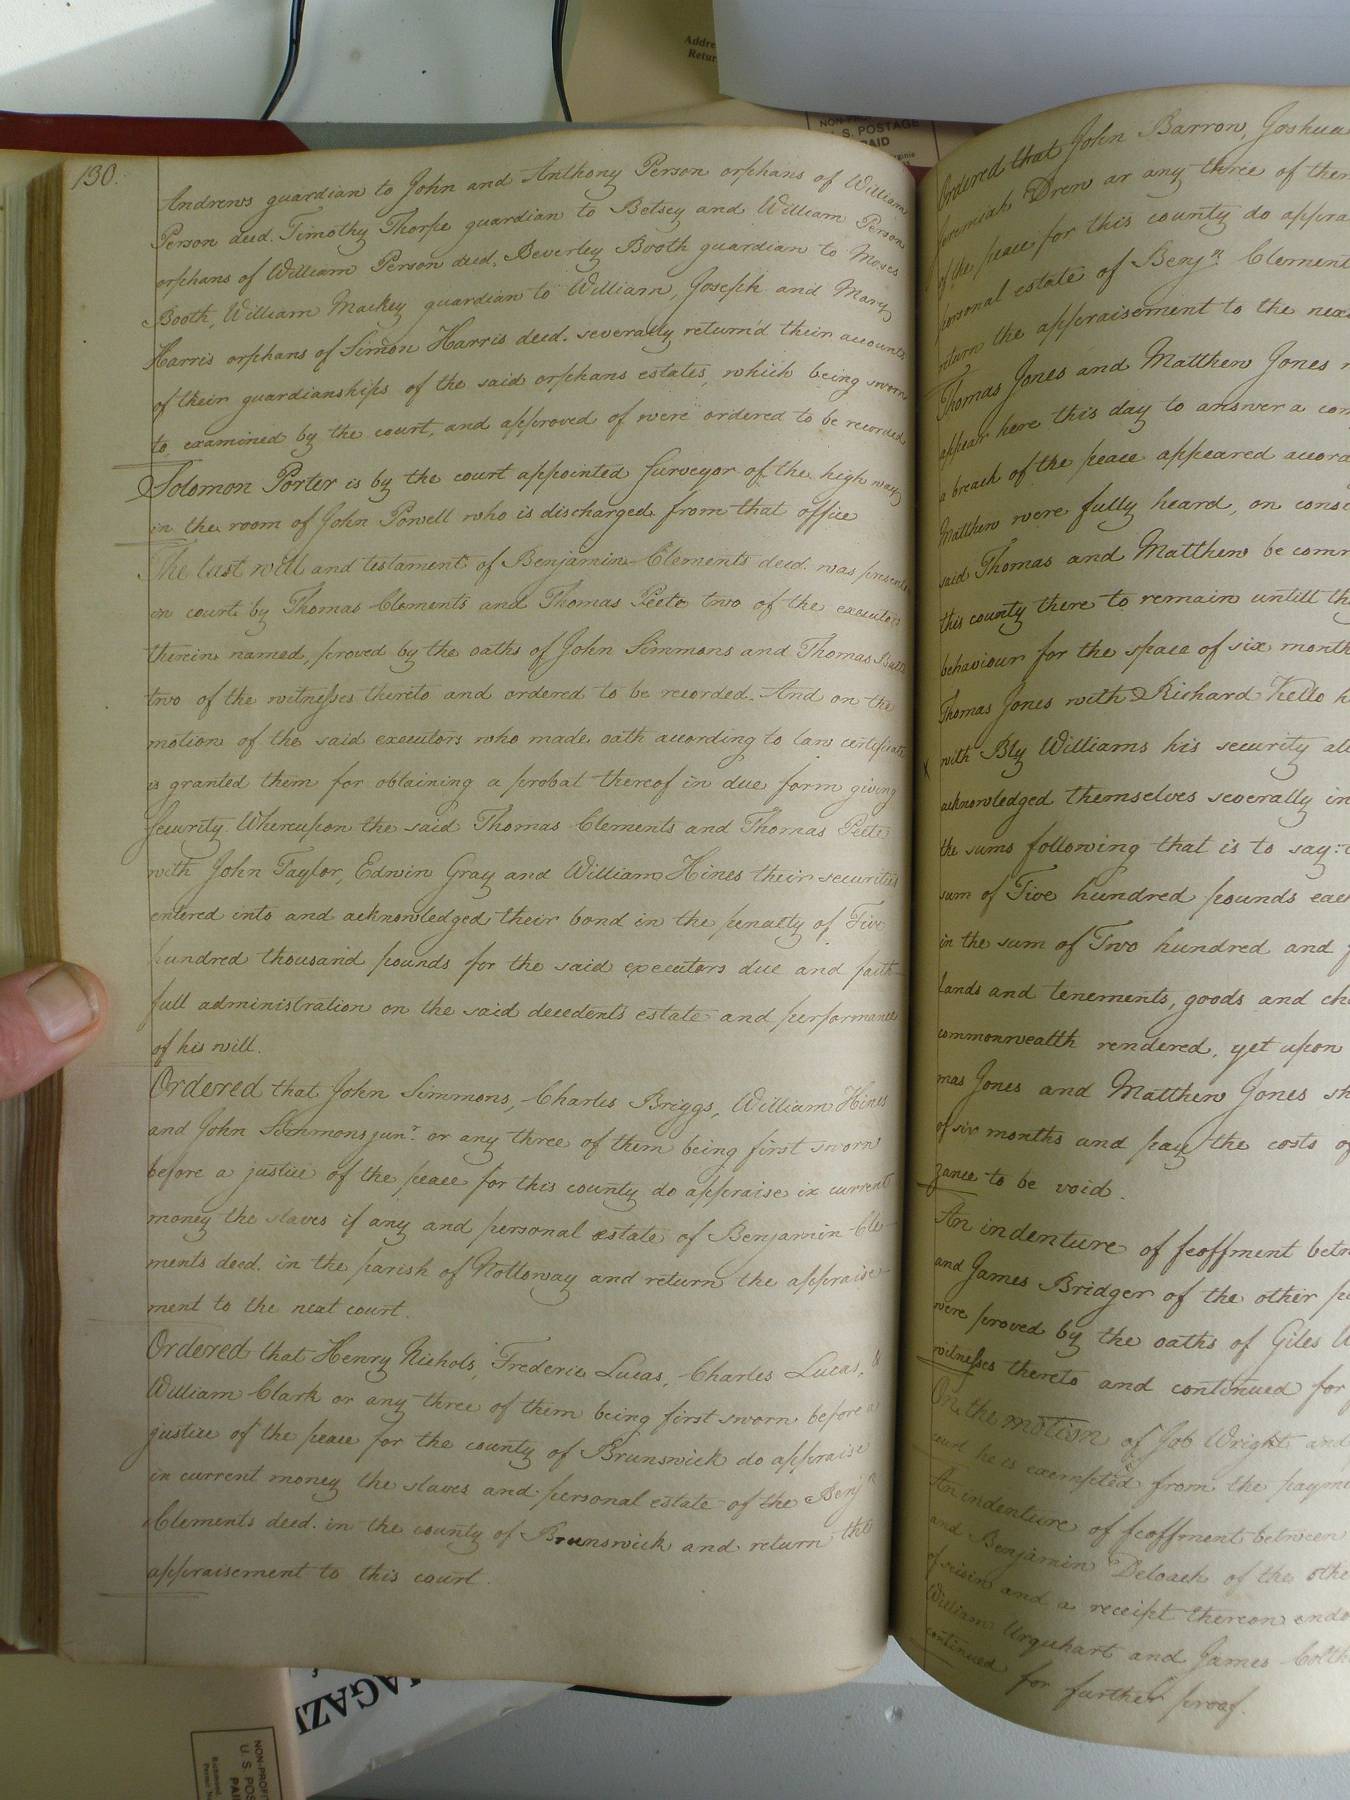 Addre
Retur
NON-PRO
U. S. POSTAGE
PAID
130.
Andrews guardian to John and Anthony Person orphans of William
Person decd. Timothy Thorpe guardian to Betsey and William Person
orphans of William Person decd. Beverley Booth guardian to Moses
Booth, William Mackey guardian to William, Joseph and Mary
Harris orphans of Simon Harris decd. severally return'd their accounts
of their guardianships of the said orphans estates, which being sworn
to, examined by the court, and approved of were ordered to be recorded
Solomon Porter is by the court appointed surveyor of the high way
in the room of John Powell who is discharged from that office
The last will and testament of Benjamin Clements decd. was presented
in court by Thomas Clements and Thomas Peete two of the executors
therein named, proved by the oaths of John Simmons and Thomas
two of the witnesses thereto and ordered to be recorded. And on the
motion of the said executors who made oath according to law certificate
is granted them for obtaining a probat thereof in due form giving
security. Whereupon the said Thomas Clements and Thomas Peete
with John Taylor, Edwin Gray and William Hines their securities
entered into and acknowledged their bond in the penalty of Five
hundred thousand pounds for the said executors due and faith-
full administration on the said decedents estate and performance
of his will.
Ordered that John Simmons, Charles Briggs, William Hines
and John Simmons junr. or any three of them being first sworn
before a justice of the peace for this county do appraise in current
money the slaves if any and personal estate of Benjamin Cle-
ments decd. in the parish of Nottoway and return the appraise-
ment to the next court.
Ordered that Henry Nichols, Frederic Lucas, Charles Lucas, &
William Clark or any three of them being first sworn before a
justice of the peace for the county of Brunswick do appraise
in current money the slaves and personal estate of the Benjn
Clements decd. in the county of Brunswick and return the
appraisement to this court.
Ordered that John Barron, Joshua
Jeremiah Drew or any three of them
of the peace for this county do appra
personal estate of Benjn. Clement
return the appraisement to the next
Thomas Jones and Matthew Jones
appear here this day to answer a com
a breach of the peace appeared accord
Matthew were fully heard, on consi
said Thomas and Matthew be comm
this county there to remain untill th
behaviour for the space of six month
Thomas Jones with Richard Kello h
with Bly Williams his security al
acknowledged themselves severally in
the sums following that is to say:
sum of Five hundred pounds eac
in the sum of Two hundred and f
lands and tenements, goods and ch
commonwealth rendered, yet upon
mas Jones and Matthew Jones sh
of six months and pay the costs of
zance to be void.
An indenture of feoffment betw
and James Bridger of the other p
were proved by the oaths of Giles W
witnesses thereto and continued for
On the motion of Job Wright and
court he is exempted from the payme
An indenture of feoffment between
and Benjamin Deloach of the othe
of seisin and a receipt thereon endo
William Urquhart and James Colth
continued for further proof.
MAGAZI
NON-PROFI
U. S. POS
PAI
Richmond,